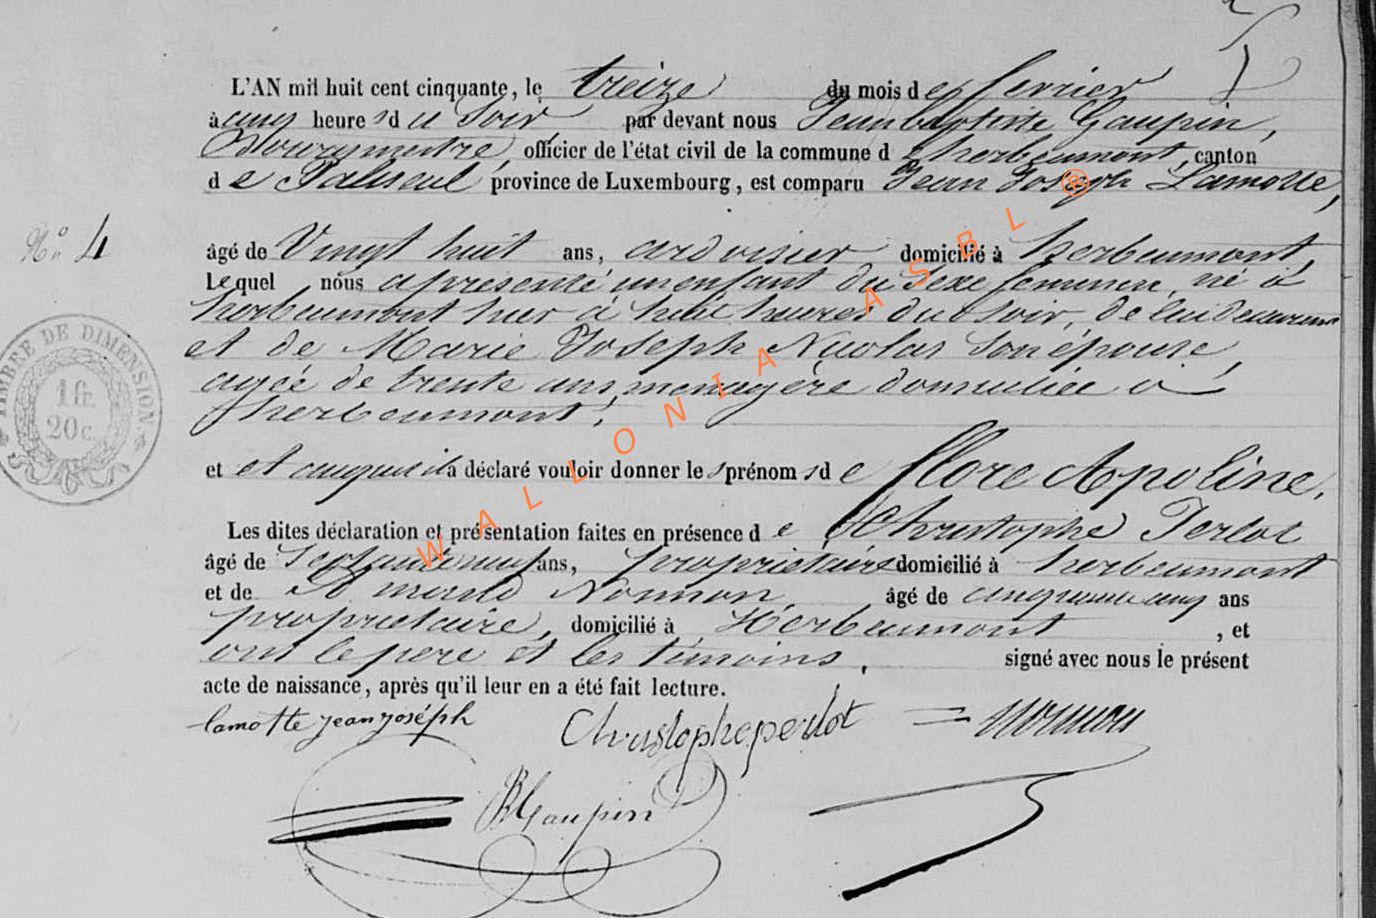 L'AN mil huit cent cinquante, le treize du mois de fevrier
à cinq heures du Soir par devant nous Jean baptiste Gaupin,
Bourgmestre, officier de l'état civil de la commune d'herbeumont, canton
de Paliseul province de Luxembourg, est comparu Jean Joseph Lamotte,
N° 4
âgé de Vingt huit ans, ardoisier domicilié à herbeumont,
Lequel nous a présenté un enfant du Sexe feminin, né à
herbeumont hier à huit heures du Soir, de lui Déclarant
et de Marie Joseph Nicolas Son épouse,
agée de trente ans, menagère domiciliée à
herbeumont,
TIMBRE DE DIMENSION
1 fr.
20 c.
et et auquel il a déclaré vouloir donner les prénoms de flore Apoline.
Les dites déclaration et présentation faites en présence de Christophe Perlot
âgé de Septante neuf ans, propriétaire domicilié à herbeumont
et de Nonnon, âgé de cinquante cinq ans
propriétaire, domicilié à Herbeumont, et
ont le pere et les témoins, signé avec nous le présent
acte de naissance, après qu'il leur en a été fait lecture.
lamotte jean joséph Christophe perlot nonnon
JBGaupin
WALLONIA ASBL ®